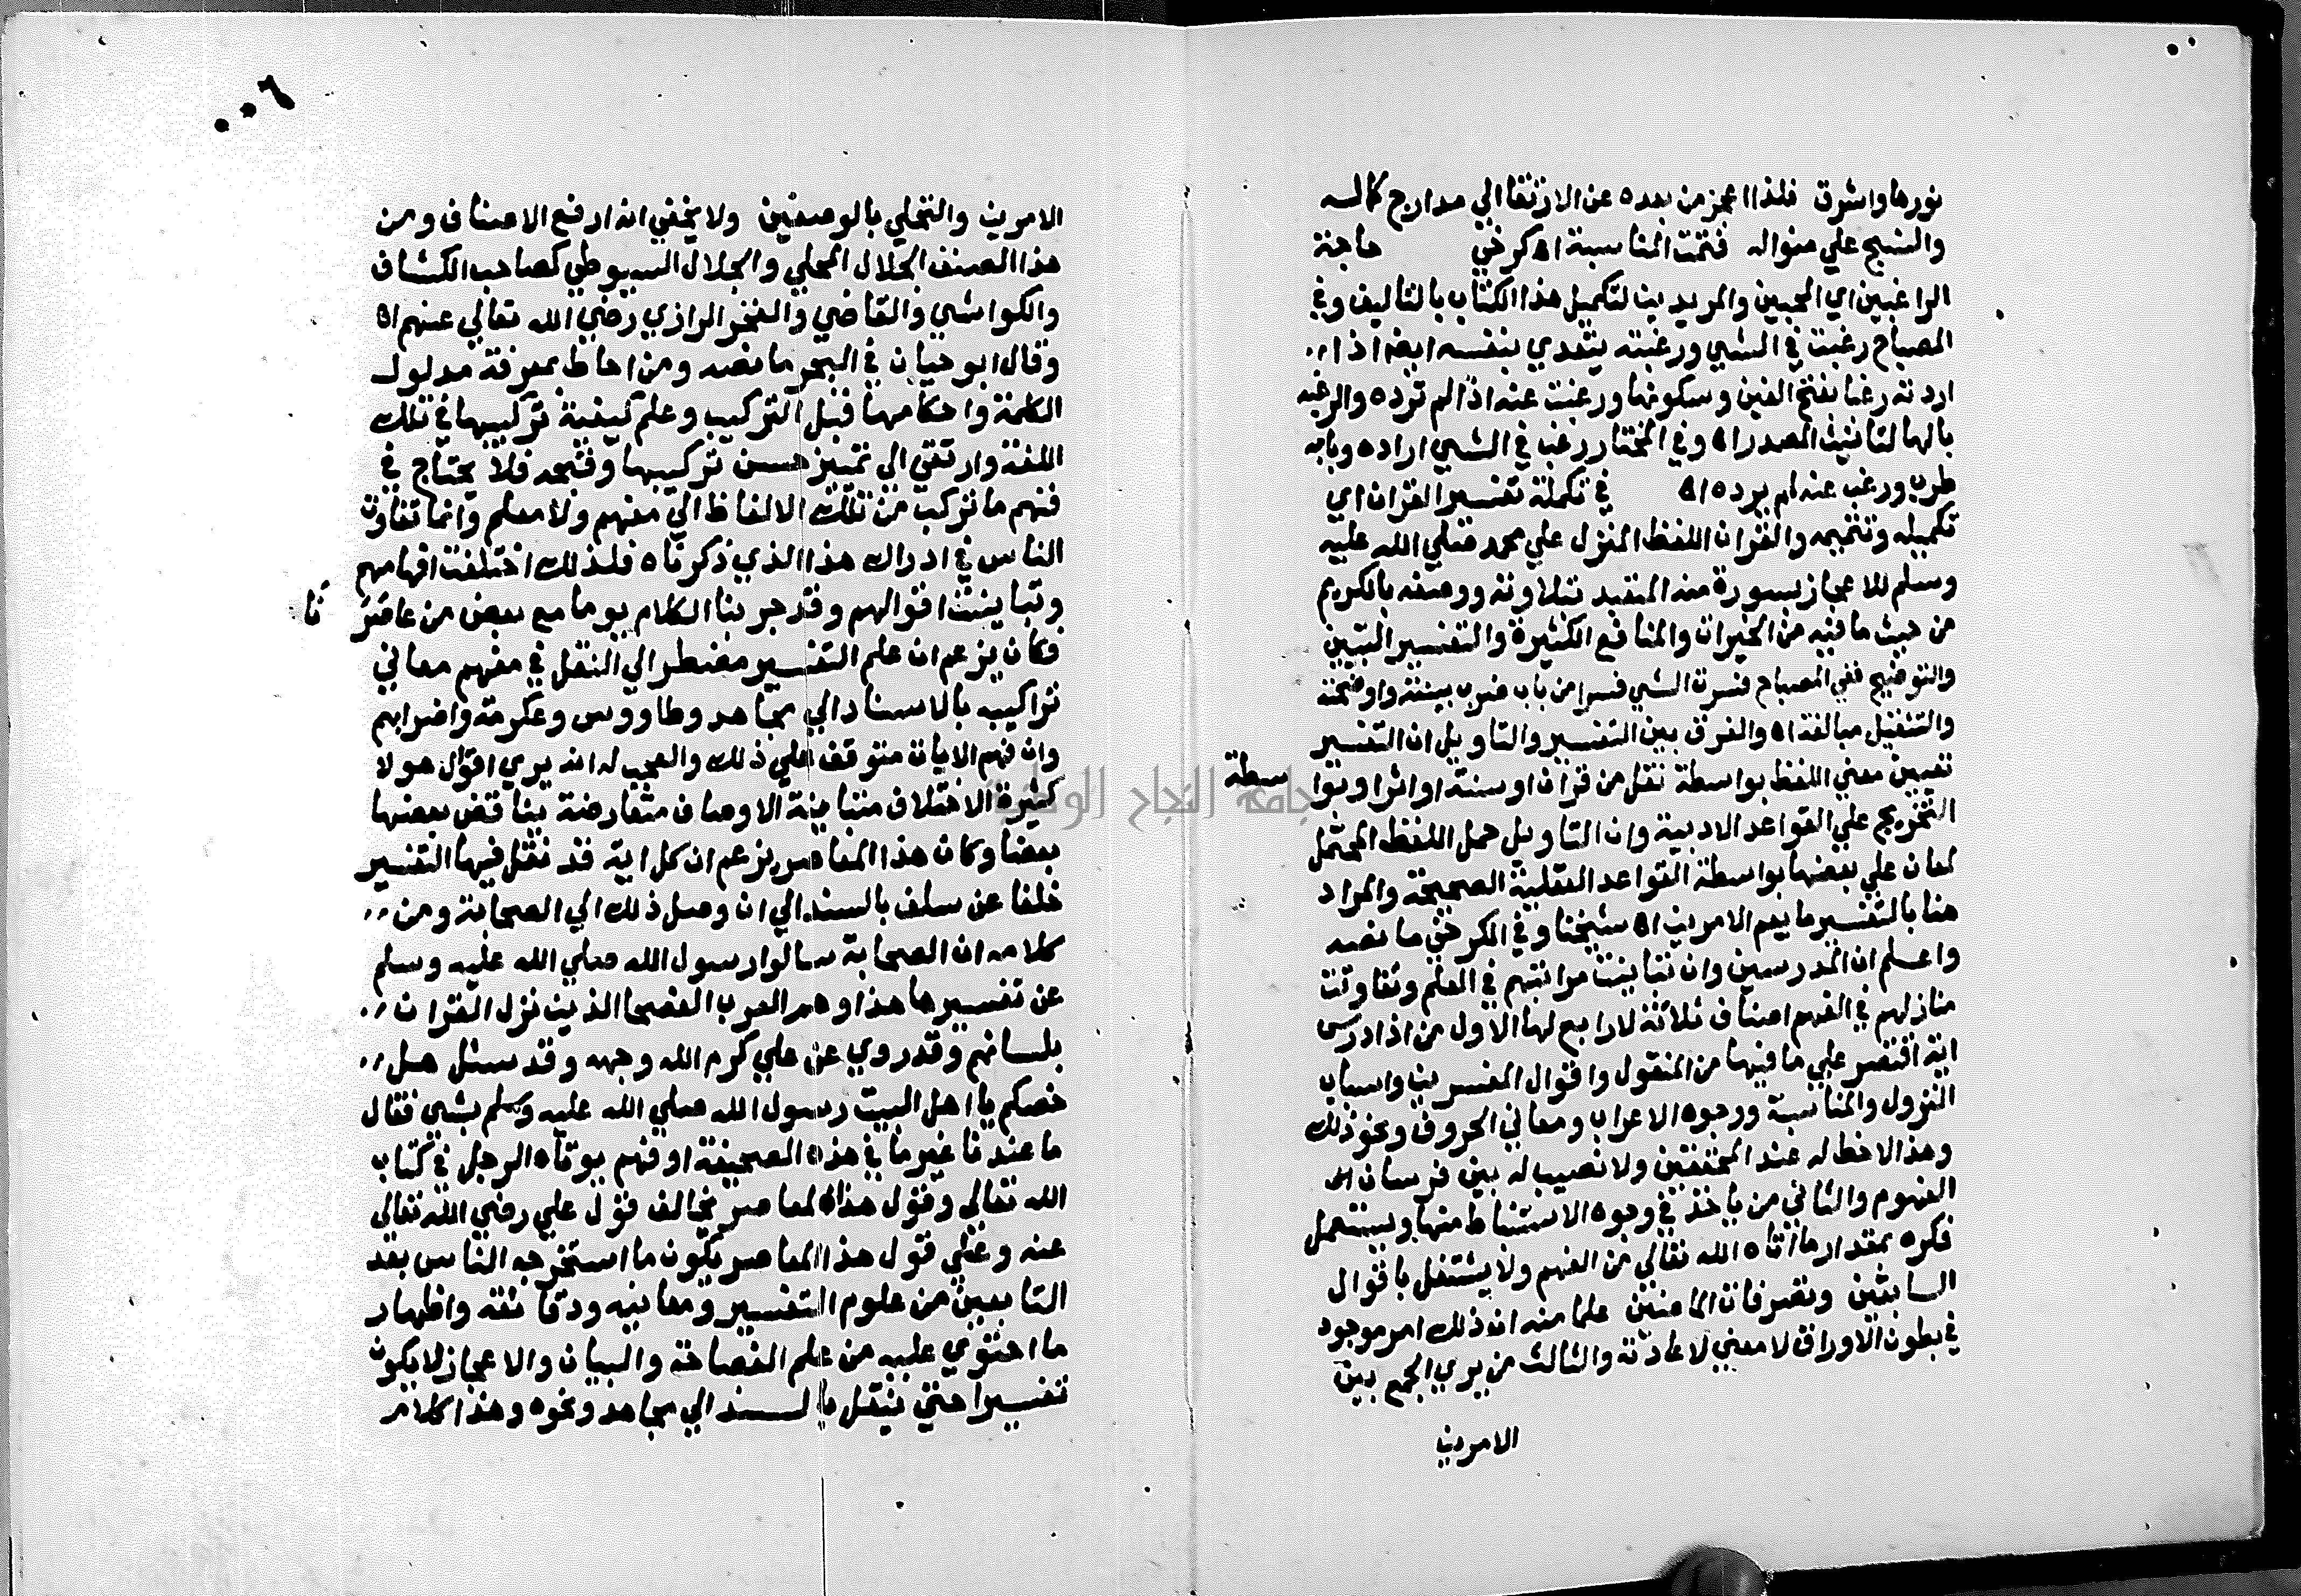 نورها واشرق فلذا اعجز من بعده عن الارتقا الي مدارج كماله
والنسج علي منواله فتمت المناسبة اه كرخي حاجة
الراغبين اي المحبين والمريدين لتكميل هذا الكتاب بالتاليف وفي
المصباح رغبت في الشي ورغبته يتعدي بنفسه ايضا اذا
اردته رغبا بفتح الغين وسكونها ورغبت عنه اذا لم ترده والرغبه
بالها لتانيث المصدر اه وفي المختار رغب في الشي اراده وبابه
طرب ورغب عنه لم يرده اه في تكملة تفسير القران اي
تكميله وتتميمه والقران اللفظ المنزل علي محمد صلي الله عليه
وسلم للاعجاز بسورة منه المتعبد بتلاوته ووصفه بالكريم
من حيث ما فيه من الخيرات والمنافع الكثيرة والتفسير التبيين
والتوضيح ففي المصباح فسرت الشي فسرا من باب ضرب بينته واوضحته
والتثقيل مبالغة اه والفرق بين التفسير والتاويل ان التفسير
تعيين معني اللفظ بواسطة نقل من قران او سنة او اثر او بواسطة
التخريج علي القواعد الادبية وان التاويل حمل اللفظ المحتمل
لمعان علي بعضها بواسطة القواعد العقلية الصحيحة والمراد
هنا بالتفسير ما يعم الامرين اه شيخنا وفي الكرخي ما نصه
واعلم ان المدرسين وان تباينت مراتبهم في العلم وتفاوتت
منازلهم في الفهم اصناف ثلاثة لا رابع لها الاول من اذا درس
اية اقتصر علي ما فيها من المنقول واقوال المفسرين واسباب
النزول والمناسبة ووجوه الاعراب ومعاني الحروف ونحو ذلك
وهذا لاحظ له عند المحققين ولا نصيب له بين فرسان
الفهوم والثاني من ياخذ في وجوه الاستنباط منها ويستعمل
فكره بمقدار ما اتاه الله تعالي من الفهم ولا يشتغل باقوال
السابقين وتصرفات الماضين علما منه ان ذلك امر موجود
في بطون الاوراق لا معني لاعادته والثالث من يري الجمع بين
الامرين
٠٠٦
الامرين والتحلي بالوصفين ولا يخفي انه ارفع الاصناف ومن
هذا الصنف الجلال المحلي والجلال السيوطي كصاحب الكشاف
والكواشي والقاضي والفخر الرازي رضي الله تعالي عنهم اه
وقال ابو حيان في البحر ما نصه ومن احاط بمعرفة مدلول
الكلمة واحكامها قبل التركيب وعلم كيفية تركيبها في تلك
اللغة وارتقي الي تمييز حسن تركيبها وقبحه فلا يحتاج في
فهم ما تركب من تلك الالفاظ الي مفهم ولا معلم وانما تفاوت
الناس في ادراك هذا الذي ذكرناه فلذلك اختلفت افهامهم
وتباينت اقوالهم وقد جر بنا الكلام يوما مع بعض من عاصرنا
فكان يزعم ان علم التفسير مضطر الي النقل في مفهم معاني
تراكيبه بالاسناد الي مجاهد وطاووس وعكرمة واضرابهم
وان فهم الايات متوقف علي ذلك والعجب له انه يري اقوال هولا
كثيرة الاختلاف متباينة الاوصاف متعارضة يناقض بعضها
بعضا وكان هذا المعاصر يزعم ان كل اية قد نقل فيها التفسير
خلفا عن سلف بالسند الي ان وصل ذلك الي الصحابة ومن
كلامه ان الصحابة سالوا رسول الله صلي الله عليه وسلم
عن تفسيرها هذا وهم العرب الفصحا الذين نزل القران
بلسانهم وقد روي عن علي كرم الله وجهه وقد سئل هل
خصكم يا اهل البيت رسول الله صلي الله عليه وسلم بشي فقال
ما عندنا غير ما في هذه الصحيفة او فهم يوتاه الرجل في كتاب
الله تعالي وقول هذا المعاصر يخالف قول علي رضي الله تعالي
عنه وعلي قول هذا المعاصر يكون ما استخرجه الناس بعد
التابعين من علوم التفسير ومعانيه ودقائقه واظهار
ما احتوي عليه من علم الفصاحة والبيان والاعجاز لا يكون
تفسيرا حتي ينقل بالسند الي مجاهد ونحوه وهذا كلام
جامعة النجاح الوطنية